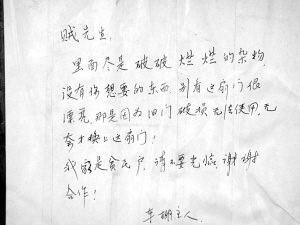 贼先生.
里面尽是破破烂烂的杂物
没有你想要的东西,别看这扇门很
漂亮,那是因为旧门破损无法使用,无
奈才换上这扇门!
我家是贫民户,请不要光临,谢谢
合作!
车棚主人.